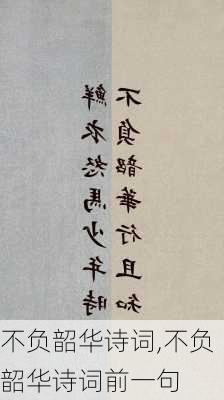 鮮衣怒馬少年時
不負韶華行且知
不负韶华诗词,不负
韶华诗词前一句